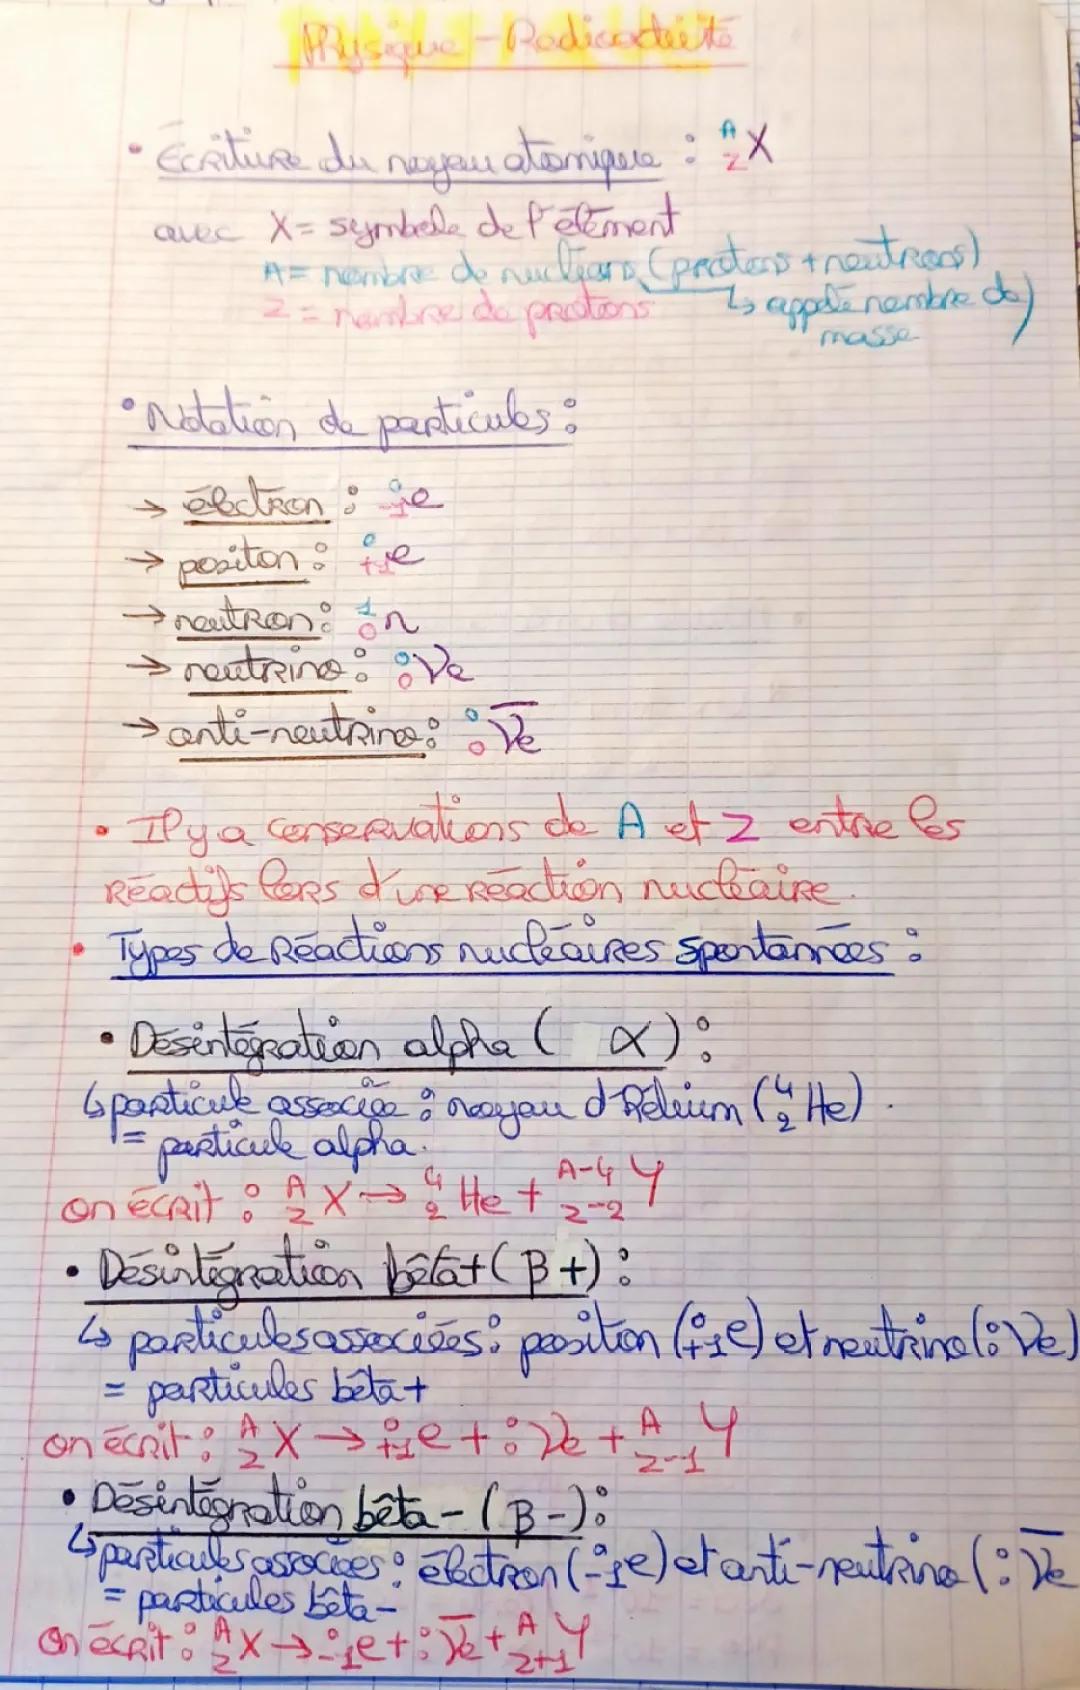 Physique - Radioactivité
• Écriture du noyau atomique : ᴬ_Z X
avec X = symbole de l'élément
A = nombre de nucléons (protons + neutrons)
Z = nombre de protons ↳ appelé nombre de
masse
• Notation de particules :
→ électron : ⁰₋₁e
→ positon : ⁰₊₁e
→ neutron : ¹₀n
→ neutrino : ⁰₀νe
→ anti-neutrino : ⁰₀ν̅e
• Il y a conservations de A et Z entre les
Réactifs lors d'une réaction nucléaire.
• Types de Réactions nucléaires spontannées :
• Désintégration alpha ( α ) :
↳ particule associée : noyau d'hélium (⁴₂He).
= particule alpha.
on écrit : ᴬ_Z X → ⁴₂He + ᴬ⁻⁴_Z₋₂ Y
• Désintégration bêta+ ( β + ) :
↳ particules associées : positon (⁰₊₁e) et neutrino (⁰₀νe)
= particules bêta +
on écrit : ᴬ_Z X → ⁰₊₁e + ⁰₀νe + ᴬ_Z₋₁ Y
• Désintégration bêta - ( β - ) :
↳ particules associées : électron (⁰₋₁e) et anti-neutrino (⁰₀ν̅e
= particules bêta -
on écrit : ᴬ_Z X → ⁰₋₁e + ⁰₀ν̅e + ᴬ_Z₊₁ Y